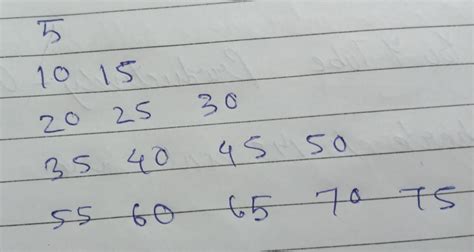 5
10 15
20 25 30
35 40 45 50
55 60 65 70 75